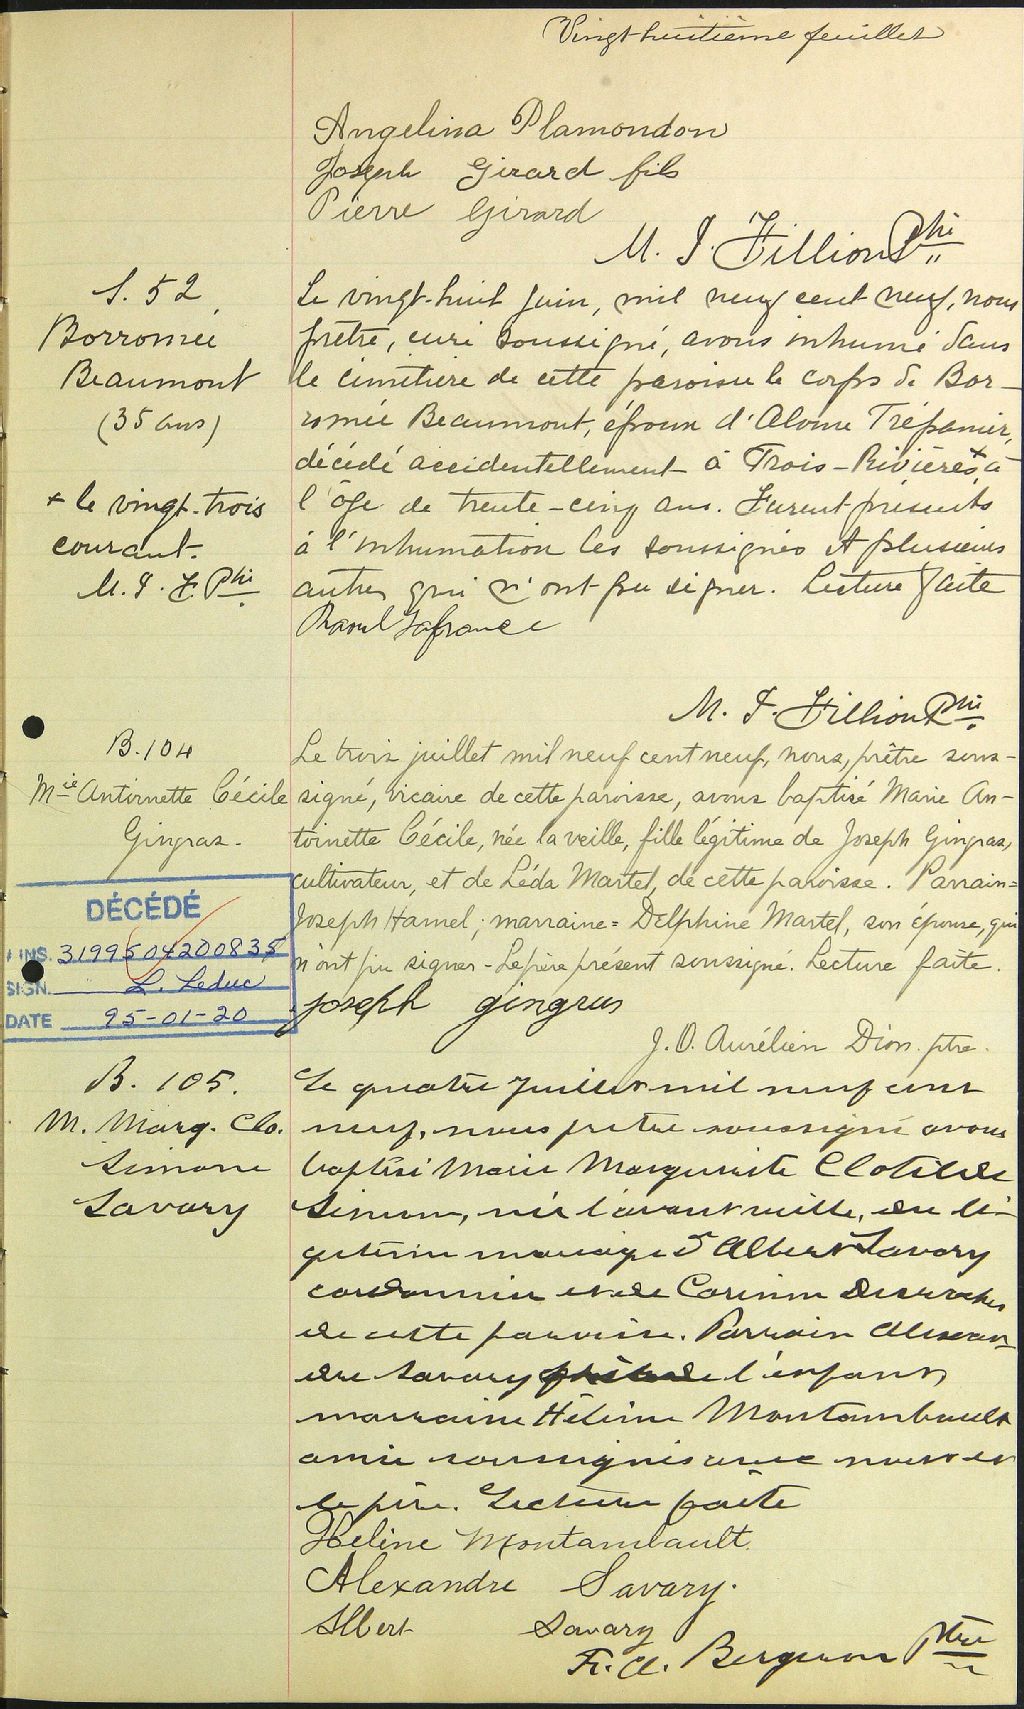 Vingt-huitième feuillet
Angelina Plamondon
Joseph Girard fils
Pierre Girard
M. J. Fillion Ptre
S. 52
Borromée
Beaumont
(35 ans)
+ le vingt-trois
courant.
M. J. F. Ptre
Le vingt-huit juin, mil neuf cent neuf, nous
prêtre, curé soussigné, avons inhumé dans
le cimetière de cette paroisse le corps de Bor-
romée Beaumont, époux d'Alvine Trépanier,
décédé accidentellement à Trois-Rivières + à
l'âge de trente-cinq ans. Furent présents
à l'inhumation les soussignés et plusieurs
autres qui n'ont pu signer. Lecture faite
Raoul Lafrance
M. J. Fillion Ptre
B. 104
Mie Antoinette Cécile
Gingras.
Le trois juillet mil neuf cent neuf, nous, prêtre sous-
signé, vicaire de cette paroisse, avons baptisé Marie An-
toinette Cécile, née la veille, fille légitime de Joseph Gingras,
cultivateur, et de Léda Martel, de cette paroisse. Parrain=
Joseph Hamel; marraine= Delphine Martel, son épouse, qui
n'ont pu signer - Le père présent soussigné. Lecture faite.
joseph gingras
J. O. Aurélien Dion ptre.
DÉCÉDÉ
INS. 3199504200835
SIGN. L. Leduc
DATE 95-01-20
B. 105.
M. Marg. Clo.
Simone
Savary
Le quatre juillet mil neuf cent
neuf, nous prêtre soussigné avons
baptisé Marie Marguerite Clotilde
Simone, née l'avant veille, du lé-
gitime mariage d'Albert Savary
cordonnier et de Corinne Desroches
de cette paroisse. Parrain Alexan-
dre Savary de l'enfant,
marraine Hélène Montambault
amie soussignés avec nous et
le père. Lecture faite
Helène Montambault.
Alexandre Savary.
Albert Savary
F. A. Bergeron Ptre